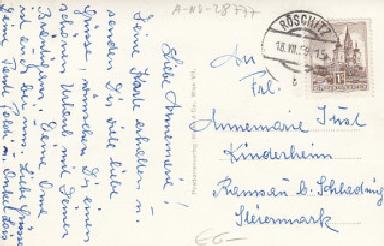 A-NÖ-28777
Liebe Annemarie!
Deine Karte erhalten u.
senden Dir viele liebe
Grüsse, wünschen Dir einen
schönen Urlaub mit Deinen
Bräutigam! Deine Oma
ist auch bei uns. Liebe Grüsse
Deine Tante Poldi u. Onkel Lois
RÖSCHITZ
18.VII.59-15
b
An
Frl.
Annemarie Just
Kinderheim
Ramsau b. Schladming
Steiermark